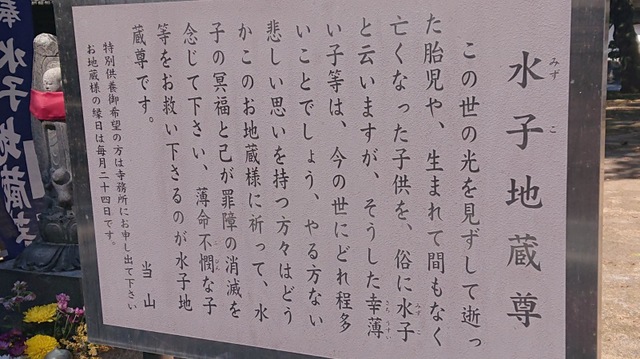 水子地蔵尊
みずこ
この世の光を見ずして逝っ
た胎児や、生まれて間もなく
亡くなった子供を、俗に水子
みずこ
と云いますが、そうした幸薄
さちうすい
い子等は、今の世にどれ程多
いことでしょう、やる方ない
悲しい思いを持つ方々はどう
かこのお地蔵様に祈って、水
子の冥福と己が罪障の消滅を
念じて下さい、薄命不憫な子
ふびん
等をお救い下さるのが水子地
蔵尊です。
当山
特別供養御希望の方は寺務所にお申し出て下さい
お地蔵様の縁日は毎月二十四日です。
奉
水子地蔵